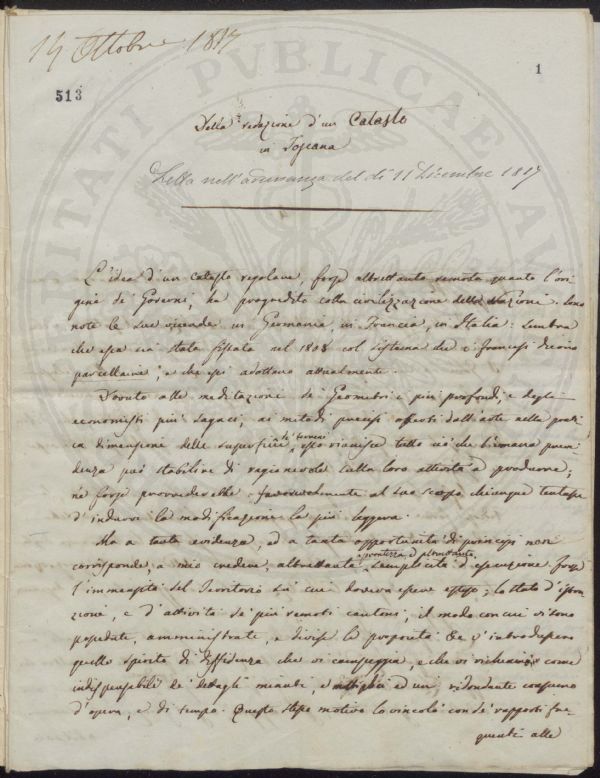 14 Ottobre 1817
513
1
Della redazione d'un Catasto
in Toscana
Letta nell'adunanza del dì 11 Dicembre 1817
L'idea d'un catasto regolare, forse altrettanto remota quanto l'ori-
gine de' Governi, ha progredito colla civilizzazione delle Nazioni. Sono
note le sue vicende in Germania, in Francia, in Italia: Sembra
che essa sia stata fissata nel 1808 col sistema che i Francesi dicono
parcellario, e che essi adottano attualmente.
Dovuto alle meditazioni de' Geometri i più profondi, e degli
economisti più sagaci, ai metodi precisi offerti dall'arte nella
dimensione delle superficie de' terreni esso riunisce tutto ciò che l'umana pru-
denza può stabilire di ragionevole sulla loro attività a produrre;
nè forse provvederebbe favorevolmente al suo scopo chiunque tentasse
d'indurvi la modificazione la più leggera.
Ma a tanta evidenza, ed a tanta opportunità di principj non
corrisponde, a mio credere, altrettanta prontezza, e semplicità d'esecuzione. Forse
l'immensità del Territorio su cui doveva essere esteso; lo stato d'istru-
zione, e d'attività de' più remoti cantoni; il modo con cui vi sono
possedute, amministrate, e divise le proprietà vi introdussero
quello spirito di diffidenza che vi campeggia, e che vi richiama come
indispensabili de' dettagli minuti, ed un ridondante consumo
d'opera, e di tempo. Questo stesso motivo lo vincolò con de' rapporti fre-
quenti alle